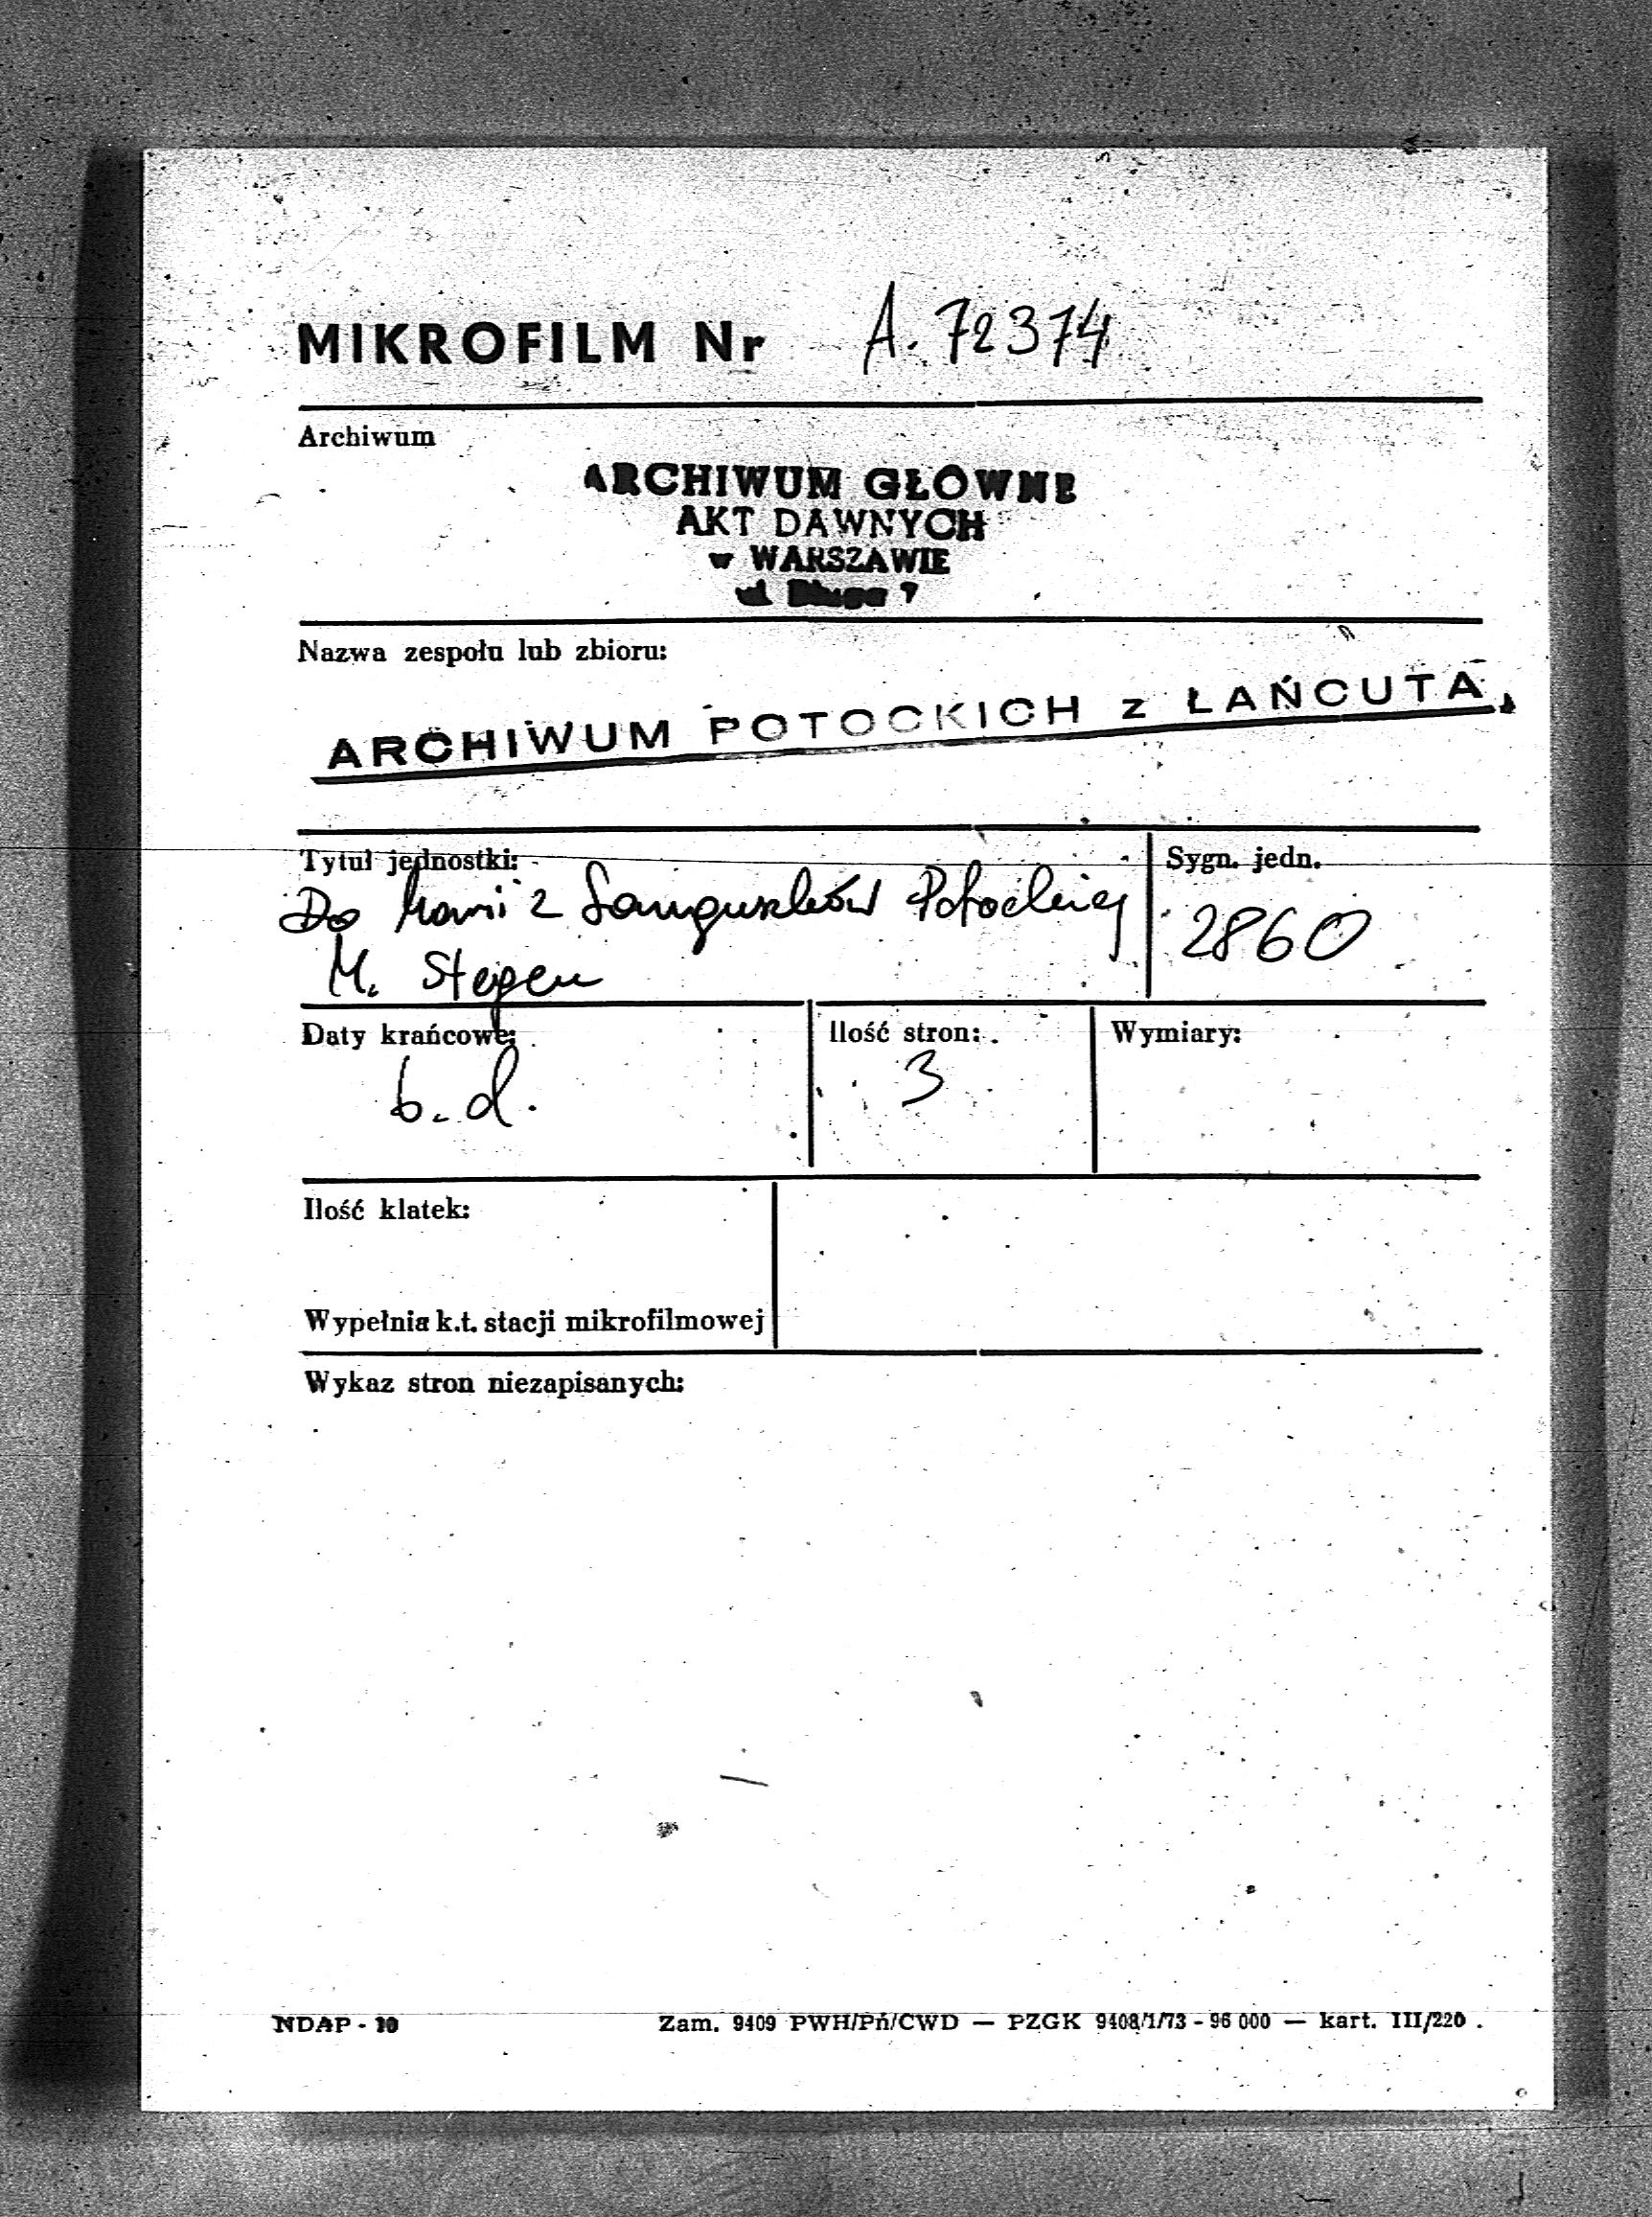 MIKROFILM Nr A. 72374
Archiwum
ARCHIWUM GŁÓWNE
AKT DAWNYCH
w WARSZAWIE
ul Długa 7
Nazwa zespołu lub zbioru:
ARCHIWUM POTOCKICH z ŁAŃCUTA
Tytuł jednostki: Sygn. jedn.
Do Marii z Sanguszków Potockiej 2860
M.
Daty krańcowe: Ilość stron: Wymiary:
b. d. 3
Ilość klatek:
Wypełnia k.t. stacji mikrofilmowej
Wykaz stron niezapisanych:
NDAP - 10 Zam. 9409 PWH/Pń/CWD — PZGK 9408/1/73 - 96 000 — kart. III/220